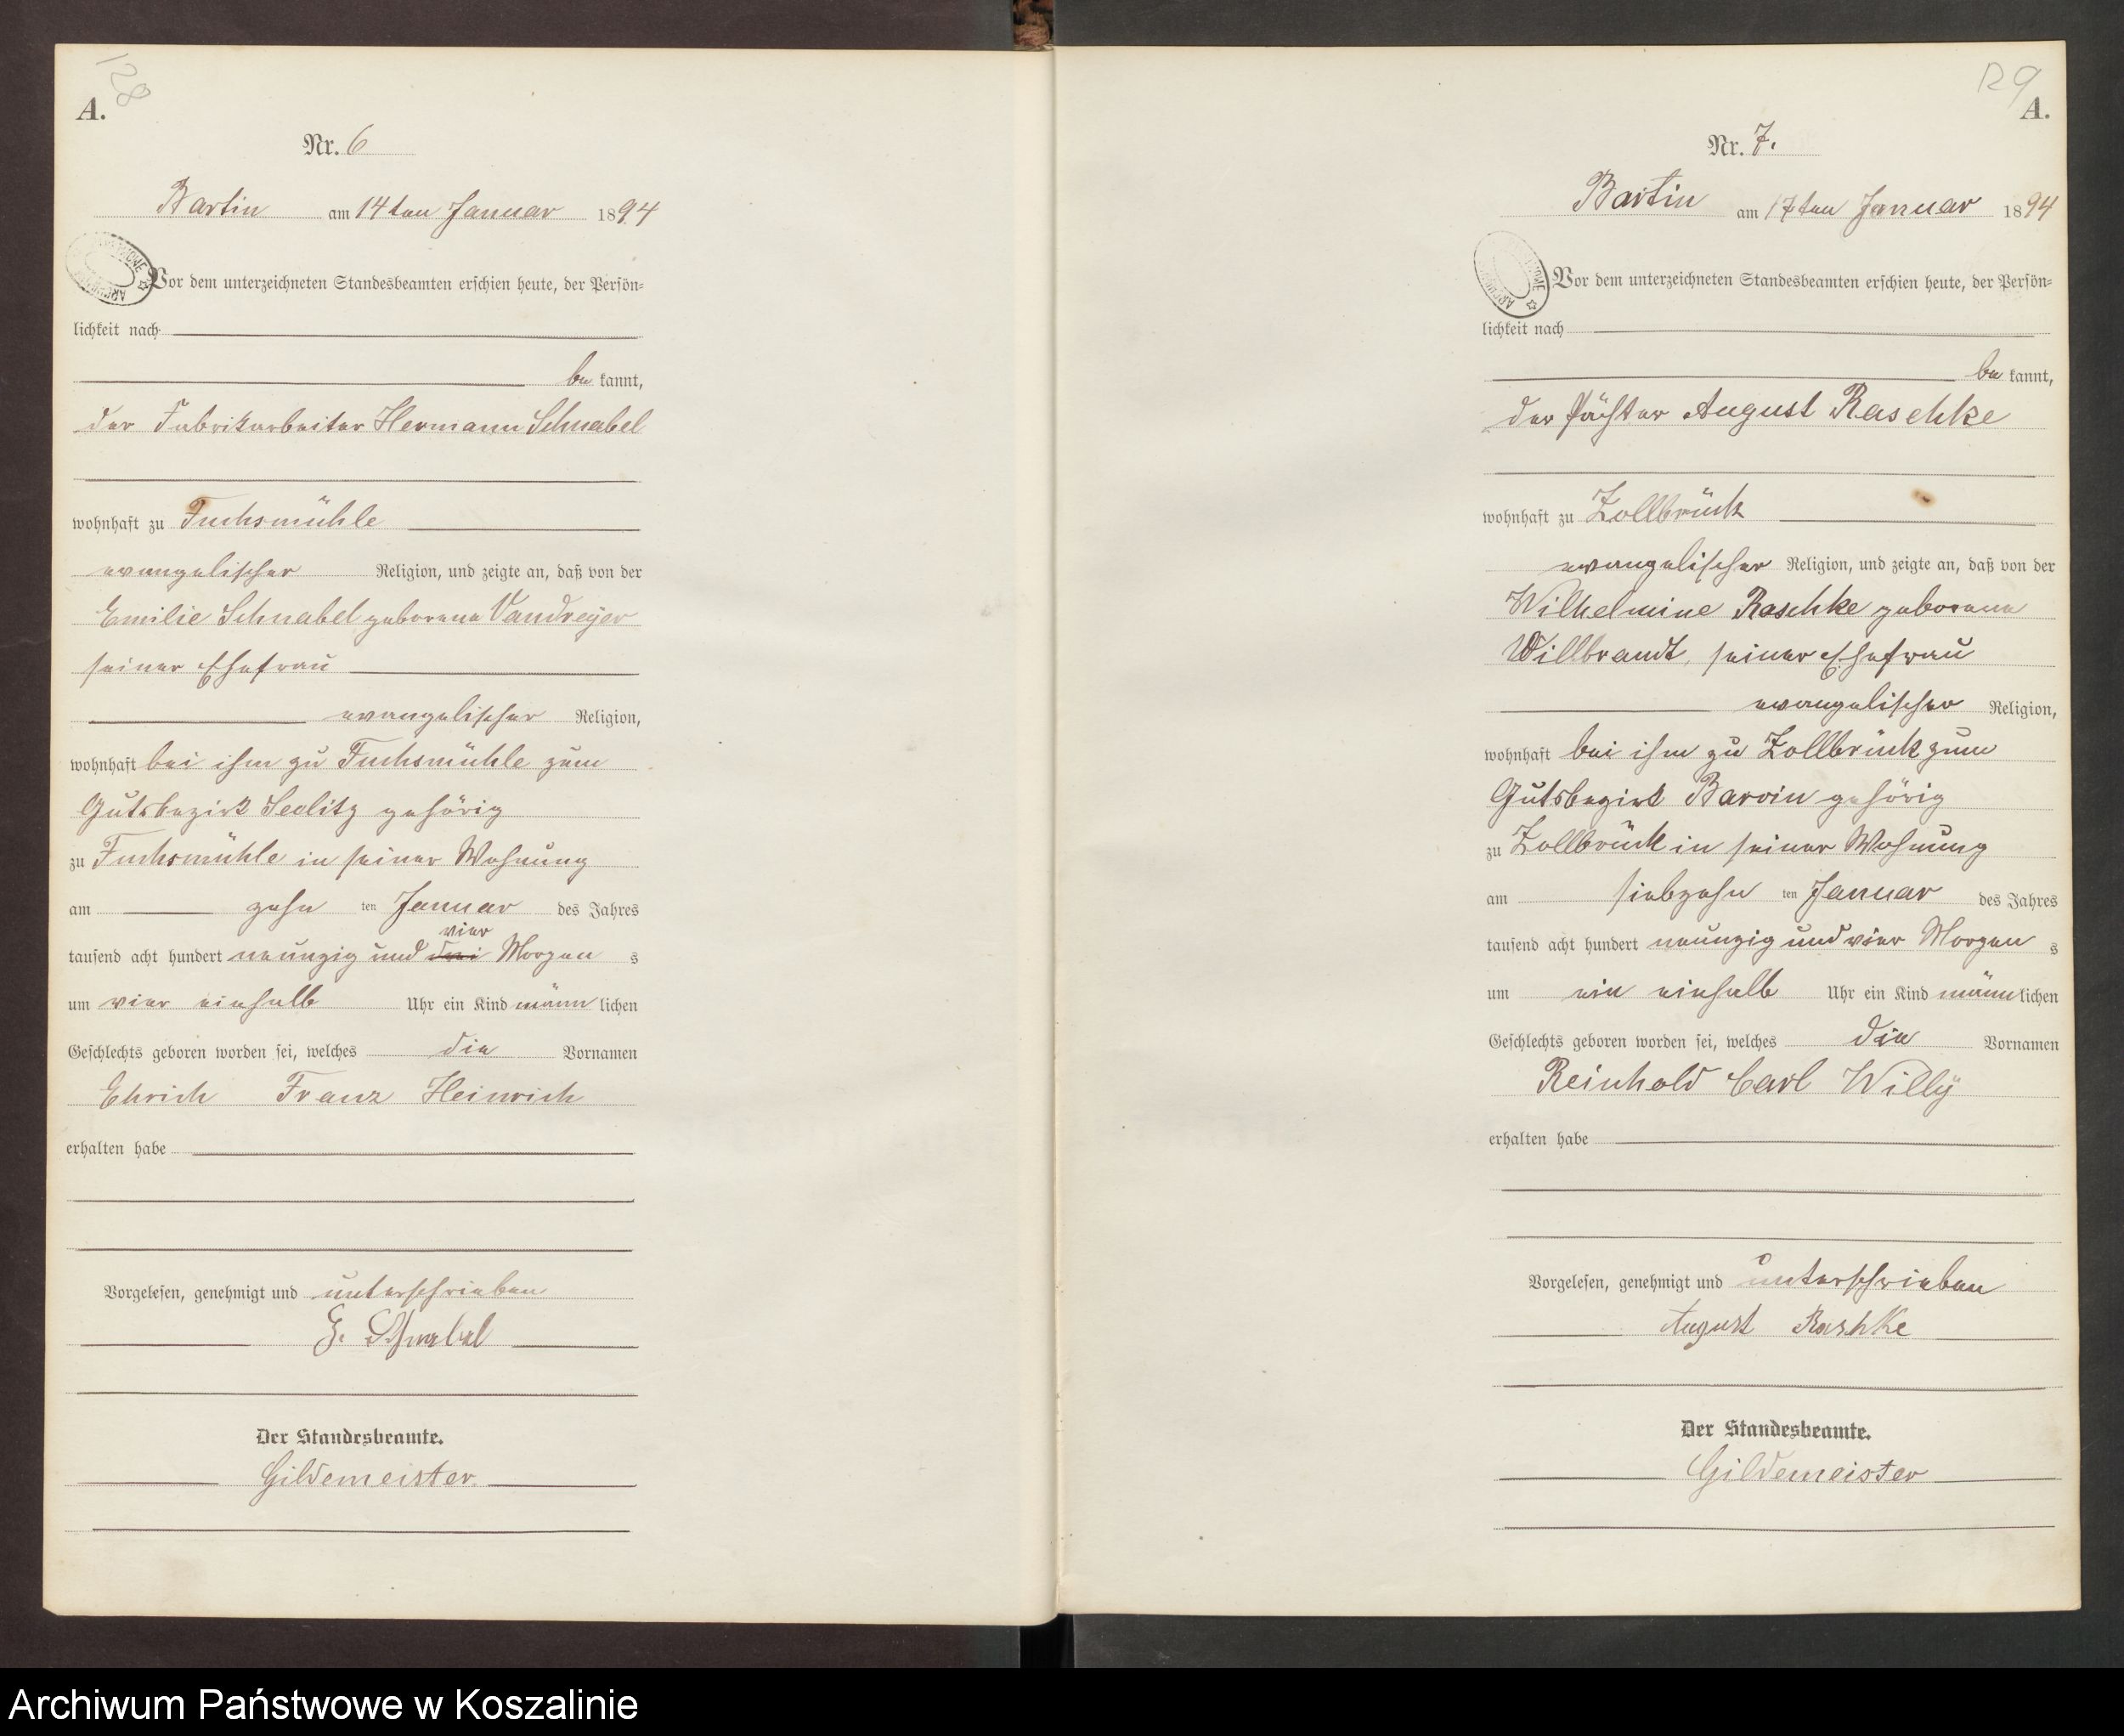 128
A.
Nr. 6
Bartin am 14ten Januar 1894
Vor dem unterzeichneten Standesbeamten erschien heute, der Persön-
lichkeit nach
be kannt,
der Fabrikarbeiter Hermann Schnabel
wohnhaft zu Fuchsmühle
evangelischer Religion, und zeigte an, daß von der
Emilie Schnabel geborene Vandreÿer
seiner Ehefrau
evangelischer Religion,
wohnhaft bei ihm zu Fuchsmühle zum
Gutsbezirk Seelitz gehörig
zu Fuchsmühle in seiner Wohnung
am zehn ten Januar des Jahres
vier
tausend acht hundert neunzig und drei Morgen s
um vier einhalb Uhr ein Kind männ lichen
Geschlechts geboren worden sei, welches die Vornamen
Ehrich Franz Heinrich
erhalten habe
Vorgelesen, genehmigt und unterschrieben
H. Schnabel
Der Standesbeamte.
Gildemeister.
129
A.
Nr. 7.
Bartin am 17ten Januar 1894
Vor dem unterzeichneten Standesbeamten erschien heute, der Persön-
lichkeit nach
be kannt,
der Pächter August Raschke
wohnhaft zu Zollbrück
evangelischer Religion, und zeigte an, daß von der
Wilhelmine Raschke geborene
Willbrandt, seiner Ehefrau
evangelischer Religion,
wohnhaft bei ihm zu Zollbrück zum
Gutsbezirk Barvin gehörig
zu Zollbrück in seiner Wohnung
am siebzehn ten Januar des Jahres
tausend acht hundert neunzig und vier Morgen s
um ein einhalb Uhr ein Kind männ lichen
Geschlechts geboren worden sei, welches die Vornamen
Reinhold Carl Willÿ
erhalten habe
Vorgelesen, genehmigt und unterschrieben
August Rashke
Der Standesbeamte.
Gildemeister
Archiwum Państwowe w Koszalinie